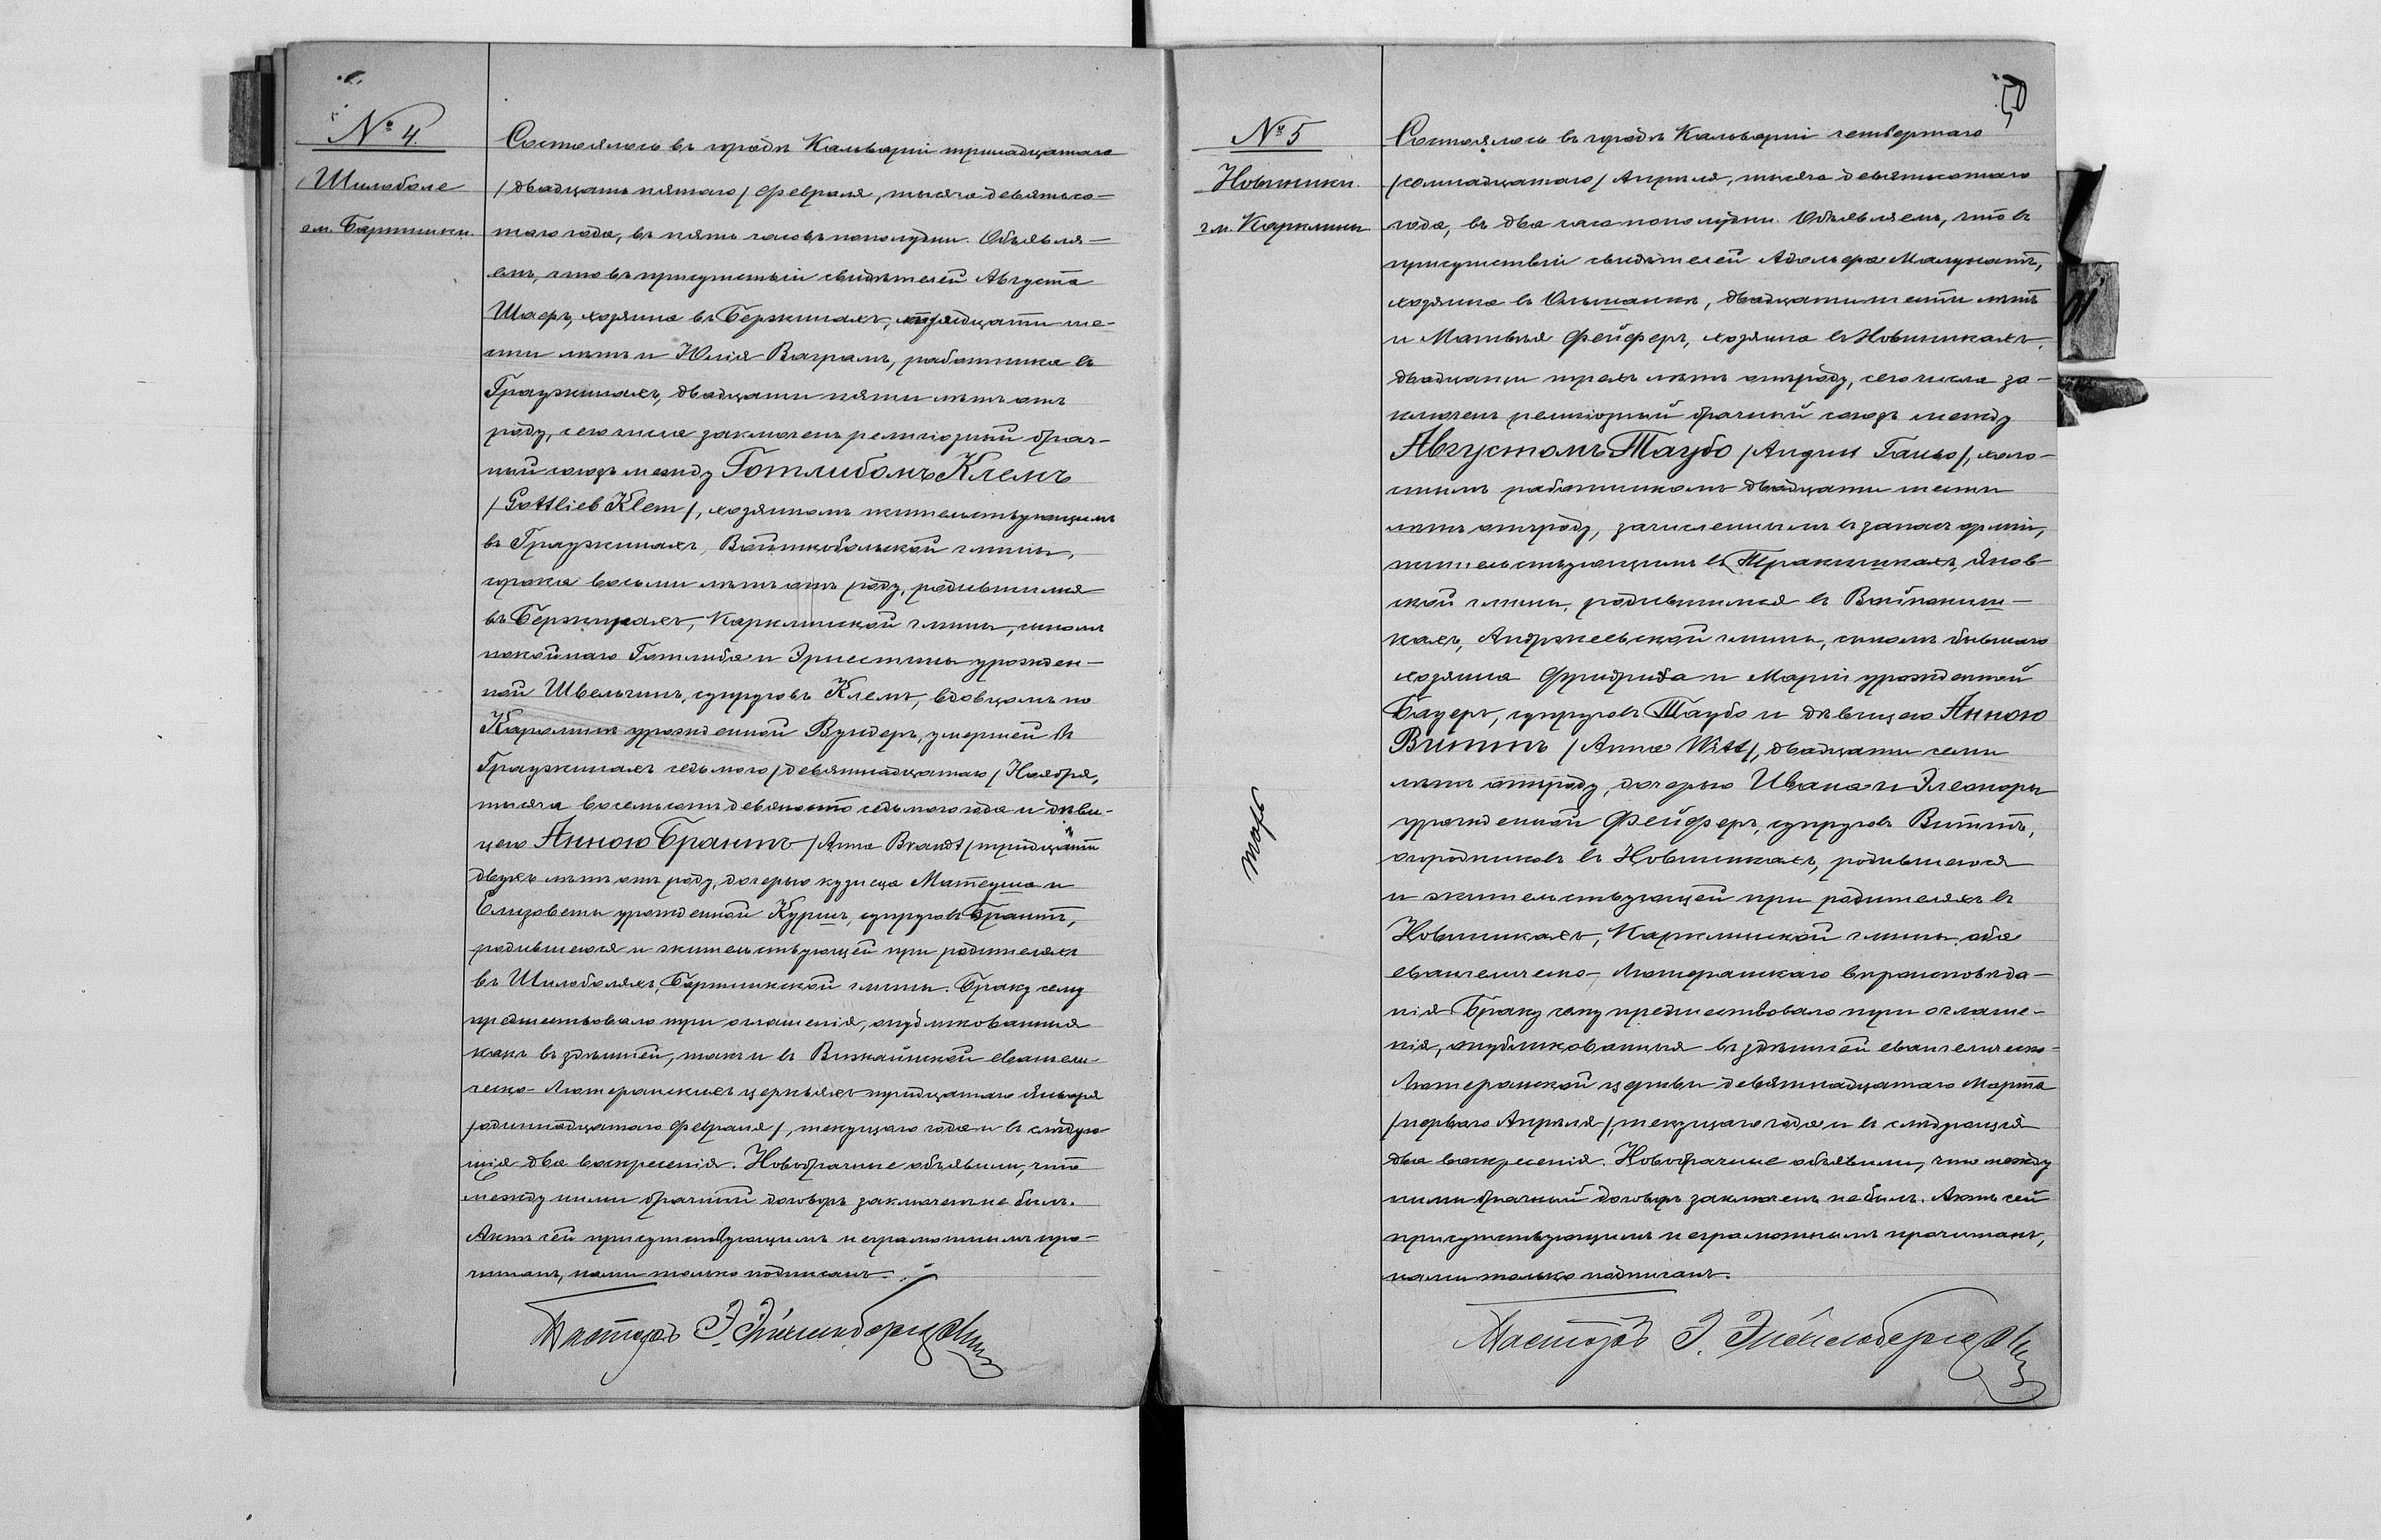 № 4.
Шилоболе
гм. Бартники.
Состоялось въ городѣ Кальваріи тринадцатаго
/двадцать пятаго/ Февраля, тысяча девятьсо-
таго года, въ пять часовъ пополудни. Объявля-
емъ, что въ присутствіи свидѣтелей Августа
Шаеръ, хозяина въ Бержинахъ, тридцати ше-
сти лѣтъ и Юлія Ваграмъ, работника въ
Гражинахъ, двадцати пяти лѣтъ отъ
роду, сего числа заключенъ религіозный брач-
ный союзъ между Готлибомъ Клемъ
/Gottlieb Klem/, хозяиномъ жительствующимъ
въ Гражинахъ, Войткобольской гмины,
сорока восьми лѣтъ отъ роду, родившимся
въ Бержинахъ, Карклинской гмины, сыномъ
покойнаго Готлиба и Эрнестины урожден-
ной Швельгинъ, супруговъ Клемъ, вдовцомъ по
Каролинѣ урожденной Вундеръ, умершей въ
Гражинахъ седьмого /девятнадцатаго/ Ноября,
тысяча восемьсотъ девяносто седьмого года и дѣви-
цею Анною Брантъ /Anna Brandt/ тридцати
двухъ лѣтъ отъ роду, дочерью кузнеца Матеуша и
Елизаветы урожденной Куршъ, супруговъ Брантъ,
родившеюся и жительствующей при родителяхъ
въ Шилоболяхъ, Бартникской гмины. Браку сему
предшествовало три оглашенія, опубликованныя
какъ въ здѣшней, такъ и въ Вижайнской евангели-
ческо-Лютеранскихъ церквяхъ тридцатаго Января
/одинадцатаго Февраля/, текущаго года и въ слѣдую-
щія два воскресенія. Новобрачные объявили, что
между ними брачный договоръ заключенъ не былъ.
Актъ сей присутствующимъ неграмотнымъ про-
читанъ, нами только подписанъ.
Пасторъ Э.
№ 5
Новинники.
гм. Карклины.
50
Состоялось въ городѣ Кальваріи четвертаго
/семнадцатаго/ Апрѣля, тысяча девятьсотаго
года, въ два часа пополудни. Объявляемъ, что въ
присутствіи свидѣтелей Адольфа Малунатъ,
хозяина въ Ольшанкѣ, двадцати шести лѣтъ
и Матвѣя Фейферъ, хозяина въ Новинникахъ,
двадцати трехъ лѣтъ отъ роду, сего числа за-
ключенъ религіозный брачный союзъ между
Августомъ Таубо /August Taubo/, холо-
стымъ работникомъ двадцати шести
лѣтъ отъ роду, зачисленнымъ въ запасъ арміи,
жительствующимъ въ Тракишкахъ, Янов-
ской гмины, родившимся въ
кахъ, Андржеевской гмины, сыномъ бывшаго
хозяина Фридриха и Маріи урожденной
Бауеръ, супруговъ Таубо и дѣвицею Анною
Виттъ /Anna Witt/, двадцати семи
лѣтъ отъ роду, дочерью Ивана и Элеоноры
урожденной Фейферъ, супруговъ Виттъ,
огородниковъ въ Новинникахъ, родившеюся
и жительствующей при родителяхъ въ
Новинникахъ, Карклинской гмины, оба
евангелическо-Лютеранскаго вѣроисповѣда-
нія. Браку сему предшествовало три оглаше-
нія, опубликованныя въ здѣшней евангелическо-
Лютеранской церкви девятнадцатаго Марта
/перваго Апрѣля/, текущаго года и въ слѣдующія
два воскресенія. Новобрачные объявили, что между
ними брачный договоръ заключенъ не былъ. Актъ сей
присутствующимъ неграмотнымъ прочитанъ,
нами только подписанъ.
Пасторъ Э.